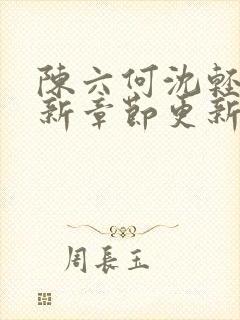 陳六何沈輕
新章節更新
周長玉